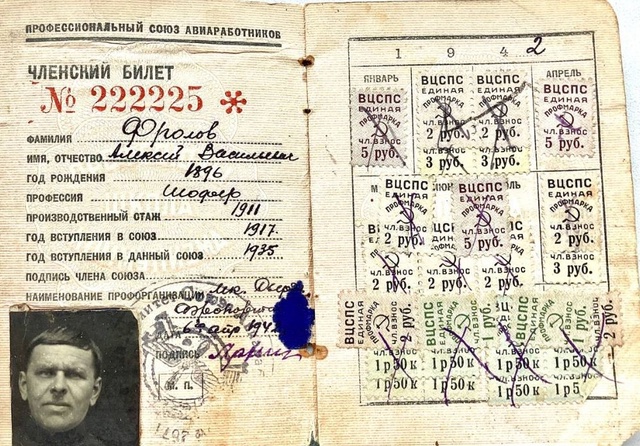 ПРОФЕССИОНАЛЬНЫЙ СОЮЗ АВИАРАБОТНИКОВ
ЧЛЕНСКИЙ БИЛЕТ
№ 222225 *
ФАМИЛИЯ Фролов
ИМЯ, ОТЧЕСТВО Алексей Васильевич
ГОД РОЖДЕНИЯ 1896
ПРОФЕССИЯ шофер
ПРОИЗВОДСТВЕННЫЙ СТАЖ 1911
ГОД ВСТУПЛЕНИЯ В СОЮЗ 1917
ГОД ВСТУПЛЕНИЯ В ДАННЫЙ СОЮЗ 1935
ПОДПИСЬ ЧЛЕНА СОЮЗА
НАИМЕНОВАНИЕ ПРОФОРГАНИЗАЦИИ
ДАТА
ПОДПИСЬ
М. П.
1 9 4 2
ЯНВАРЬ АПРЕЛЬ
ВЦСПС ЕДИНАЯ ПРОФМАРКА ЧЛ. ВЗНОС 5 руб.
ВЦСПС ЕДИНАЯ ПРОФМАРКА ЧЛ. ВЗНОС 2 руб.
3 руб.
ВЦСПС ЕДИНАЯ ПРОФМАРКА ЧЛ. ВЗНОС 2 руб.
3 руб.
ВЦСПС ЕДИНАЯ ПРОФМАРКА ЧЛ. ВЗНОС 5 руб.
ВЦСПС ЕДИНАЯ ПРОФМАРКА ЧЛ. ВЗНОС 2 руб.
2 руб.
ВЦСПС ЕДИНАЯ ПРОФМАРКА ЧЛ. ВЗНОС 5 руб.
2 руб.
2 руб.
ВЦСПС ЕДИНАЯ ПРОФМАРКА ЧЛ. ВЗНОС 2 руб.
3 руб.
ВЦСПС ЕДИНАЯ ПРОФМАРКА ЧЛ. ВЗНОС 2 руб.
1 р 50 к
1 р 50 к
ВЦСПС ЕДИНАЯ ПРОФМАРКА ЧЛ. ВЗНОС
1 р 50 к
1 р 50 к
1 р 50 к
1 р 50 к
ВЦСПС ЕДИНАЯ ПРОФМАРКА 2 руб.
1 р 50 к
1 р 5